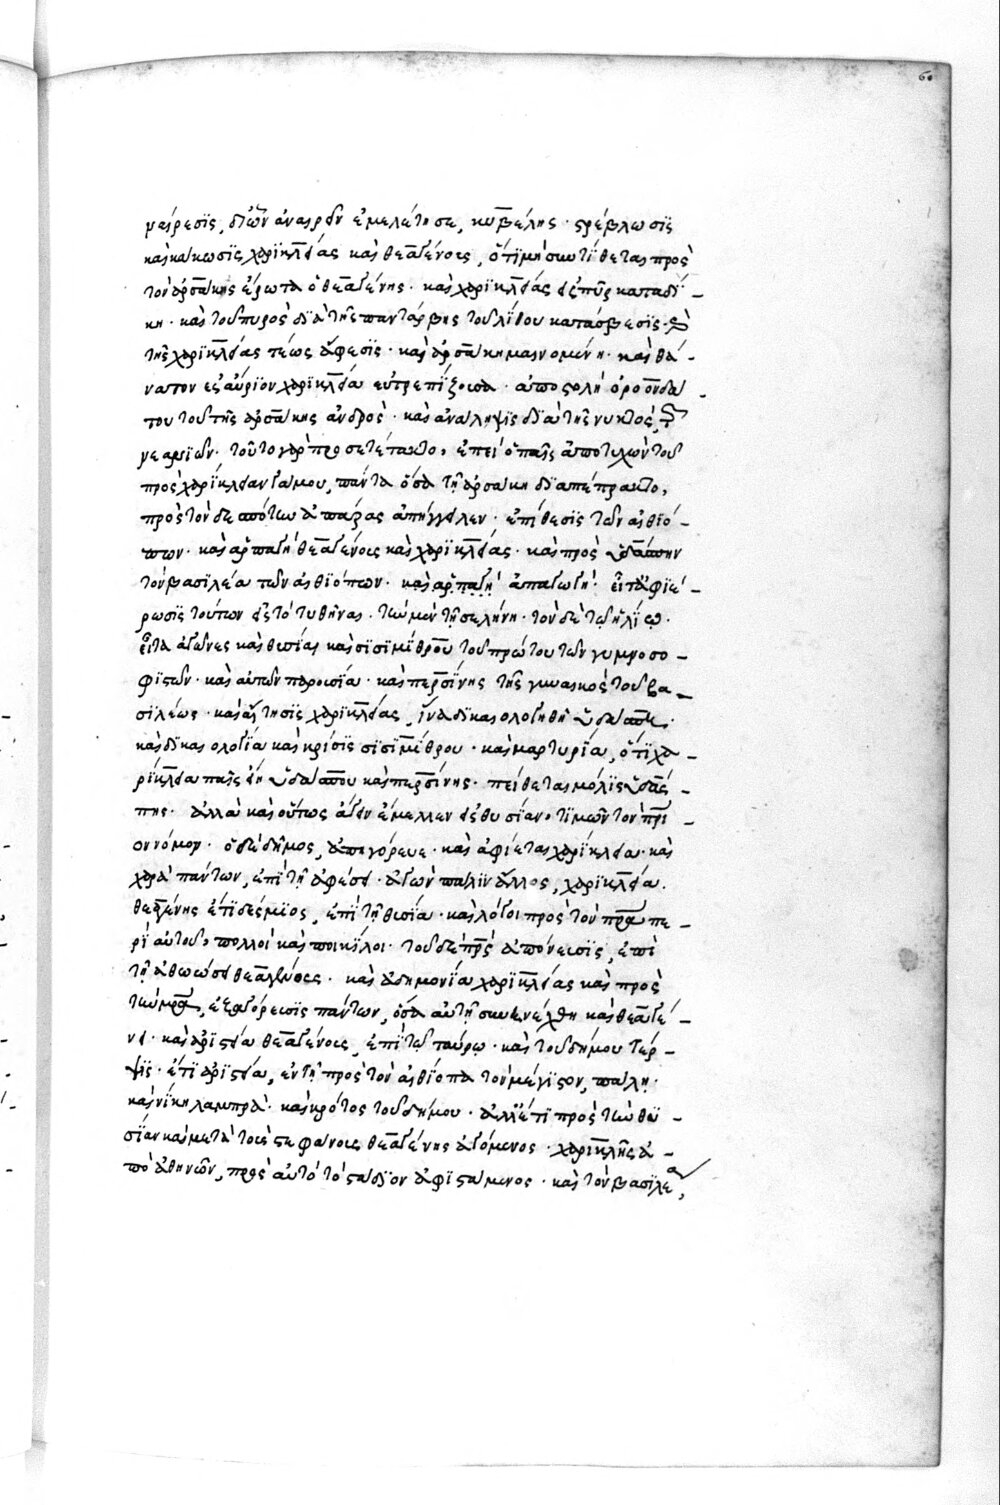 60
ναίρεσϊς, δι' ὧν ἀναιρεῖν ἐμελέτησε, κυβέλης · στρέβλωσϊς
καὶ κάκωσϊς χαρϊκλείας καὶ θεαγένους, ὅτϊ μὴ συντίθεται πρὸς
τὸν ἀρσάκης ἔρωτα ὁ θεαγένης · καὶ χαρϊκλείας εἰς πῦρ καταδί–
κη · καὶ τοῦ πυρὸς δϊὰ τῆς παντάρβης τοῦ λίθου κατάσβεσϊς · καὶ
τῆς χαρϊκλείας τέως ἄφεσϊς · καὶ ἀρσάκη μαινομένη · καὶ θά–
νατον ἐς αὔρϊον χαρϊκλεία εὐτρεπίζουσα · ἀποστολὴ ὀροονδά
του τοῦ τῆς ἀρσάκης ἀνδρὸς · καὶ ἀνάληψϊς δϊὰ τῆς νυκτὸς, τῶν
νεανϊῶν · τοῦτο γὰρ προσετέτακτο, ἐπεὶ ὁ παῖς ἀποτυχὼν τοῦ
πρὸς χαρίκλειαν γάμου, πάντα ὅσα τῇ ἀρσάκη δϊαπέπρακτο,
πρὸς τὸν δεσπότην ἁπάξας ἀπήγγειλεν · ἐπίθεσϊς τῶν αἰθϊό–
πων · καὶ ἁρπαγὴ θεαγένους καὶ χαρϊκλείας · καὶ πρὸς ὑδάσπην
τὸν βασϊλέα τῶν αἰθϊόπων · καὶ ἁρπαγὴ ἀπαγωγὴ · εἶτ' ἀφϊέ–
ρωσϊς τούτων εἰς τὸ τυθῆναι · τὴν μὲν τῇ σελήνῃ · τὸν δὲ τῷ ἡλίῳ ·
εἶτα ἀγῶνες καὶ θυσίαι καὶ σϊσϊμίθρου τοῦ πρώτου τῶν γυμνοσο–
φϊστῶν · καὶ αὐτῶν παρουσία · καὶ περσίνης τῆς γυναικὸς τοῦ βα–
σϊλέως · καὶ αἴτησϊς χαρϊκλείας, ἵνα δϊκαιολογηθῇ ὑδάσπῃ ·
καὶ δϊκαιολογία καὶ κρίσϊς σϊσϊμίθρου · καὶ μαρτυρία, ὅτϊ χα–
ρίκλεια παῖς εἴη ὑδάσπου καὶ περσίνης · πείθεται μόλϊς ὑδάσ–
πης · ἀλλὰ καὶ οὕτως ἄγειν ἔμελλεν εἰς θυσίαν, τϊμῶν τὸν πάτρι–
ον νόμον · ὁ δὲ δῆμος, ἀπηγόρευε · καὶ ἀφίεται χαρίκλεια · καὶ
χαρὰ πάντων, ἐπὶ τῇ ἀφέσει · ἀγὼν πάλϊν ἄλλος, χαρϊκλεία ·
θεαγένης ἔτϊ δέσμϊος, ἐπὶ τῇ θυσία · καὶ λόγοι πρὸς τὸν πατέρα πε–
ρὶ αὐτοῦ, πολλοὶ καὶ ποικίλοι · τοῦ δὲ πατρὸς ἀπόνευσϊς, ἐπὶ
τῇ ἀθωώσει θεαγένους · καὶ ἀδημονία χαρϊκλείας καὶ πρὸς
τὴν μητέρα, ἐξαγόρευσϊς πάντων, ὅσα αὐτῇ συνηνέχθη καὶ θεαγέ–
νει · καὶ ἀρϊστεία θεαγένους, ἐπὶ τῷ ταύρῳ · καὶ τοῦ δήμου τέρ–
ψϊς · ἔτϊ ἀρϊστεία, ἐν τῇ πρὸς τὸν αἰθίοπα τὸν μέγϊστον, πάλῃ ·
καὶ νίκη λαμπρὰ · καὶ κρότος τοῦ δήμου · ἀλλ' ἔτϊ πρὸς τὴν θυ–
σίαν καὶ μετὰ τοὺς στεφάνους θεαγένης ἀγόμενος · χαρϊκλῆς ἀ–
πὸ ἀθηνῶν, πρὸς αὐτὸ τὸ στάδϊον ἀφϊστάμενος · καὶ τὸν βασϊλέα,